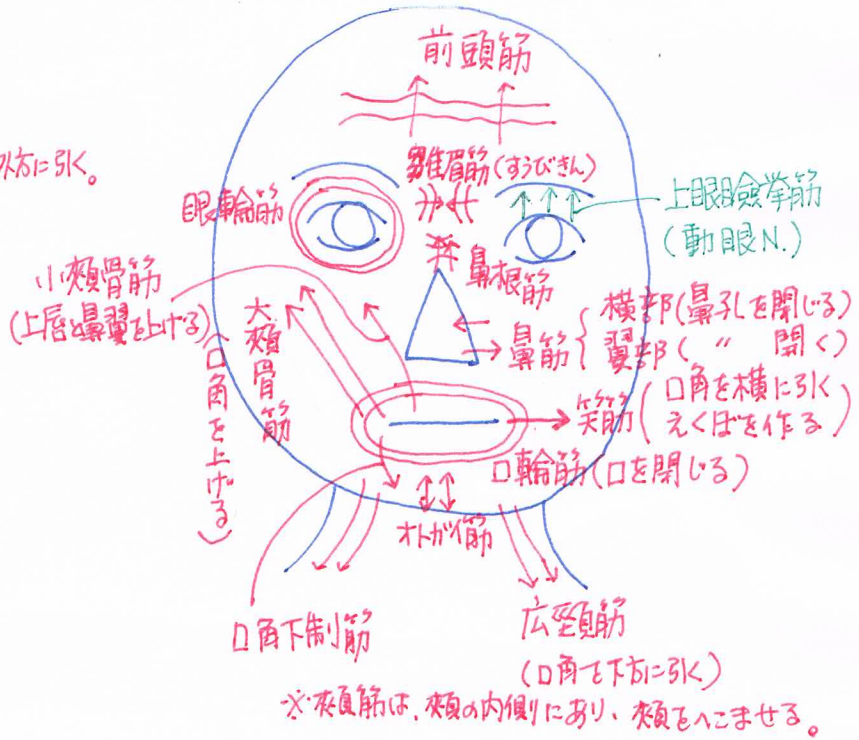 前頭筋
外方に引く。
皺眉筋(すうびきん)
眼輪筋
上眼瞼挙筋
(動眼N.)
小頬骨筋
(上唇と鼻翼を上げる)
鼻根筋
大頬骨筋
(口角を上げる)
鼻筋
横部(鼻孔を閉じる)
翼部( 〃 開く)
笑筋
(口角を横に引く
えくぼを作る)
口輪筋(口を閉じる)
オトガイ筋
口角下制筋
広頸筋
(口角を下方に引く)
※頬筋は、頬の内側にあり、頬をへこませる。